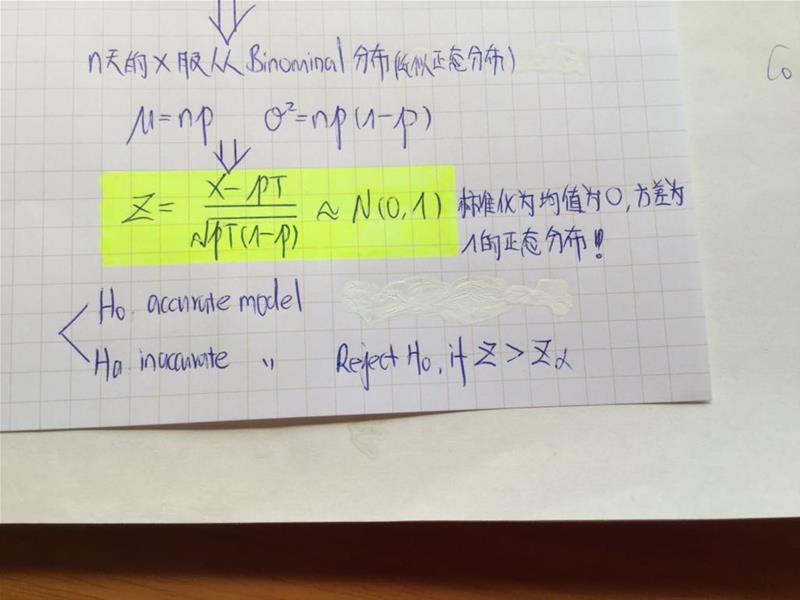 n天的X服从Binominal分布(近似正态分布)
μ=np σ²=np(1-p)
Z= (X-pT)/√(pT(1-p)) ≈ N(0,1) 标准化为均值为0,方差为
1的正态分布!
Ho. accurate model
Ha. inaccurate " Reject Ho, if Z > Zα
Co